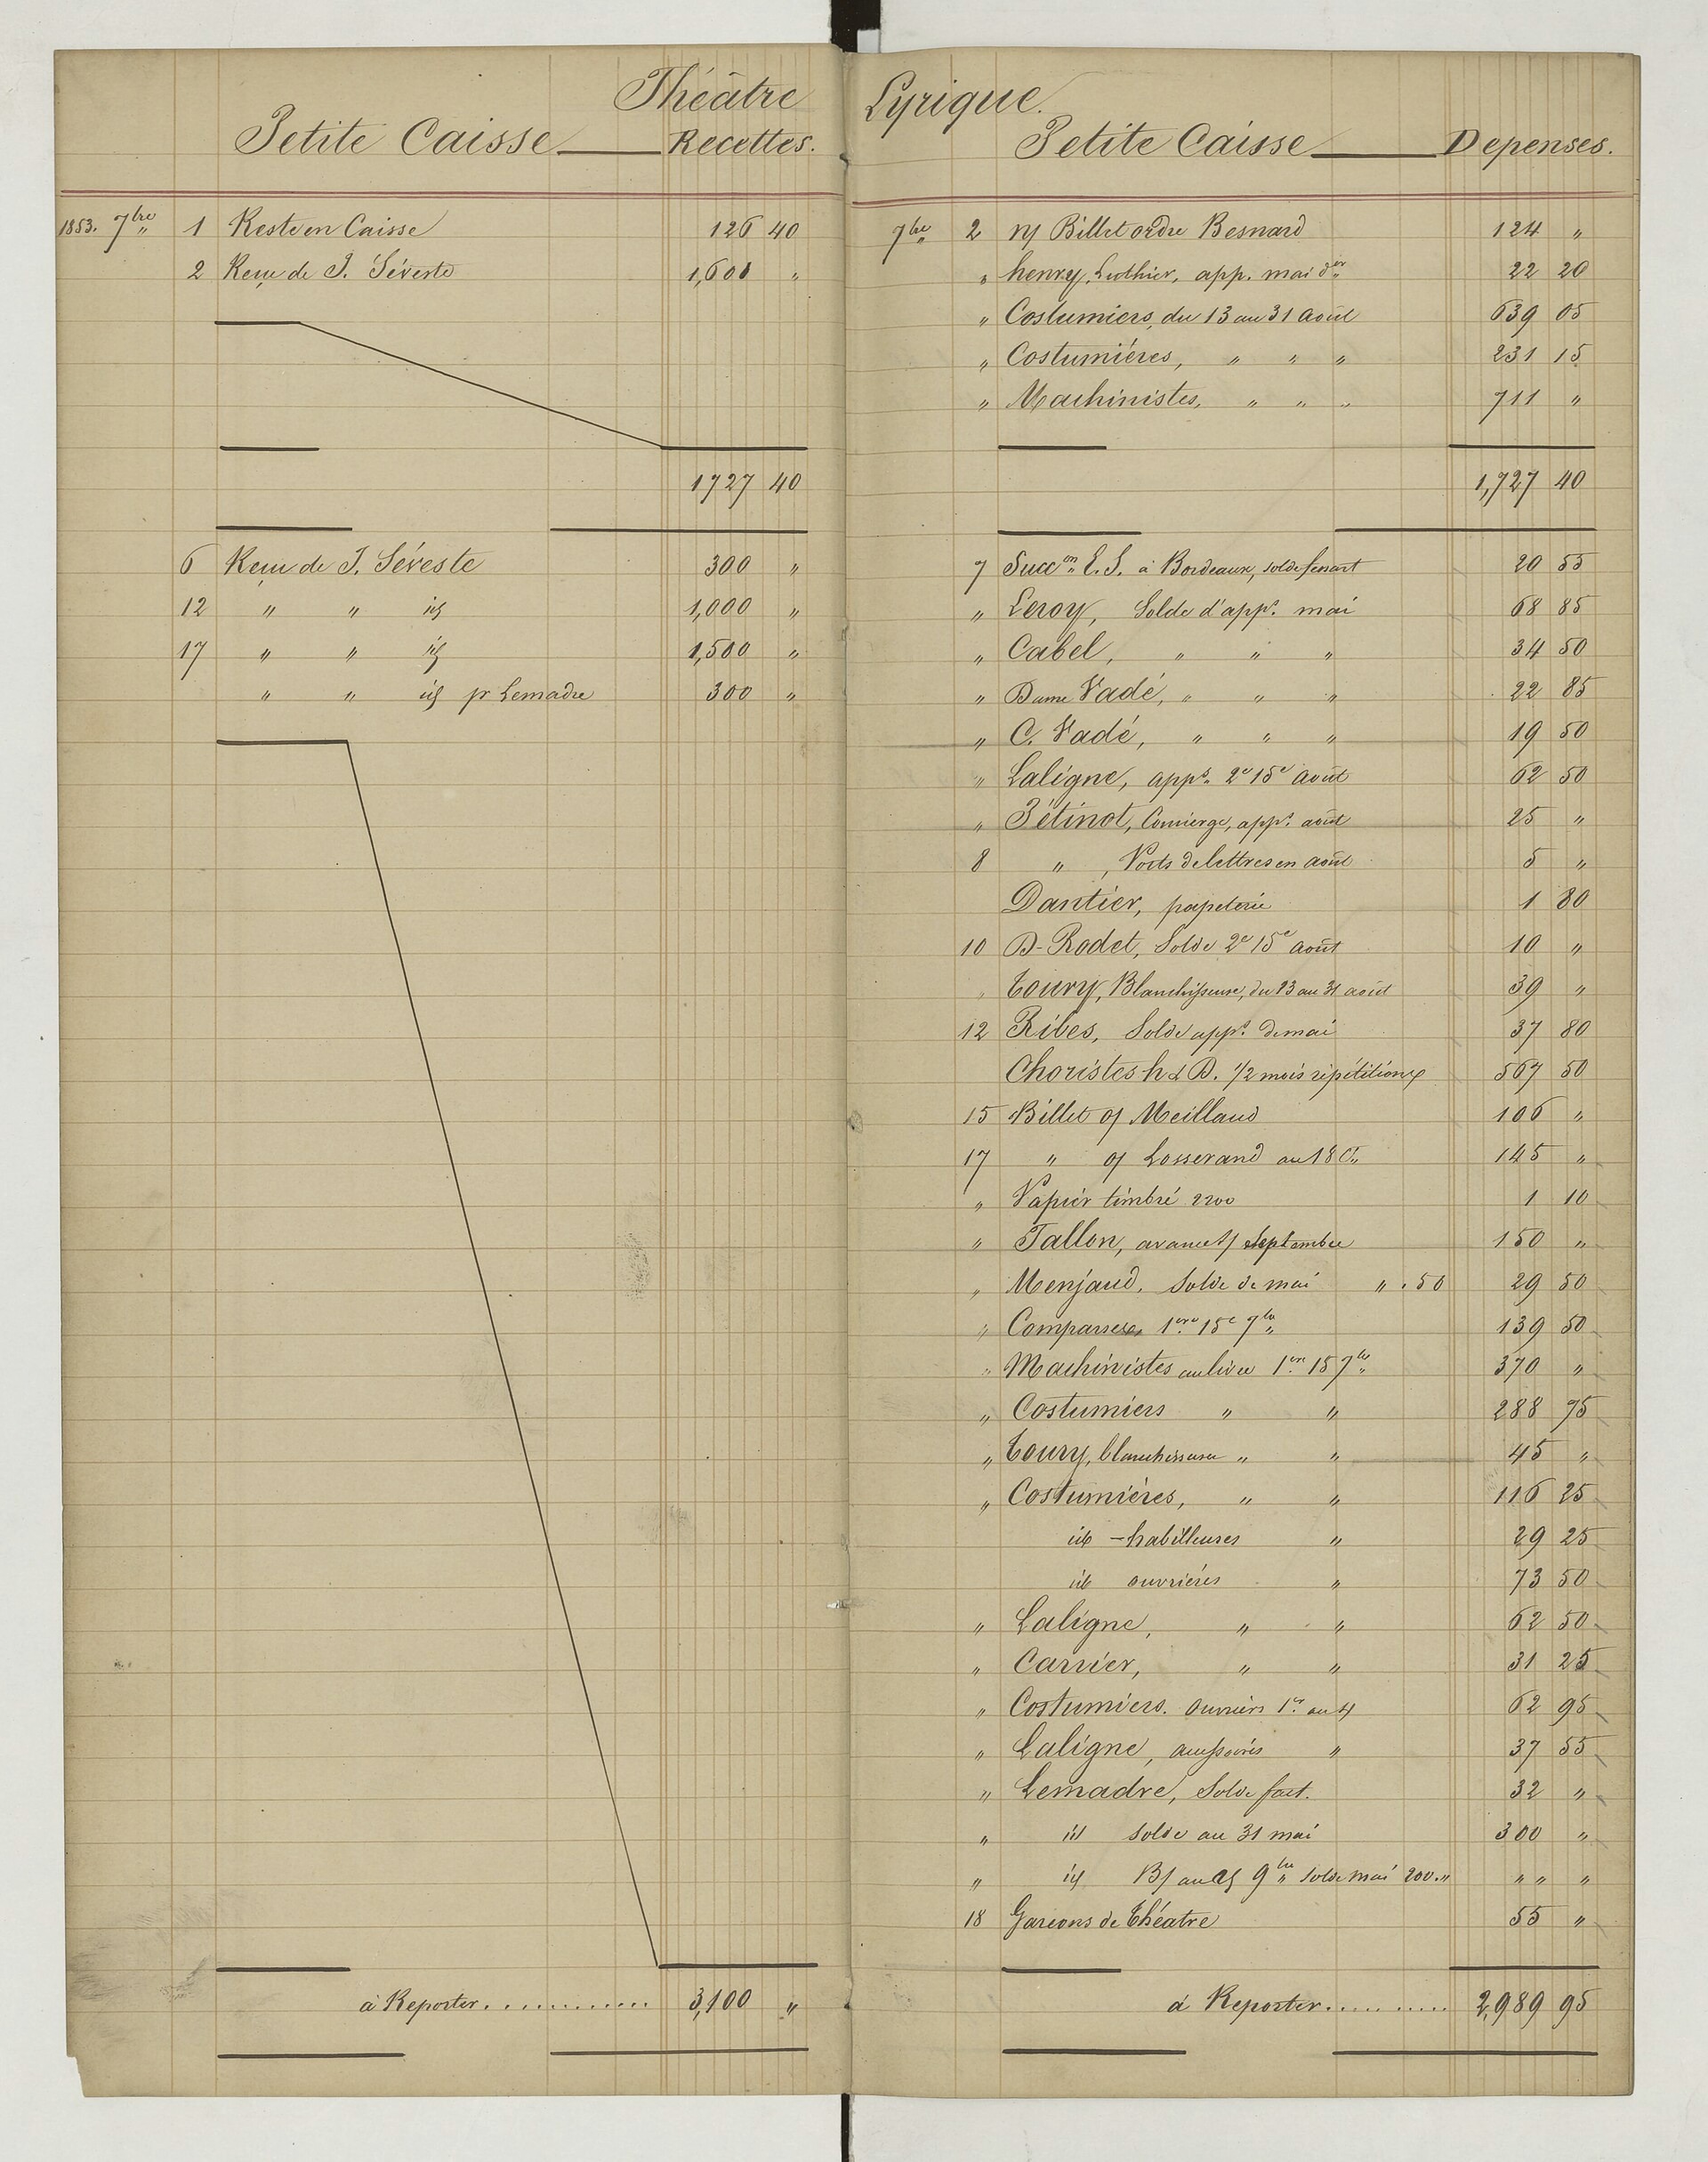 Théâtre Lyrique.
Petite Caisse — Recettes.
1853. 7bre 1 Reste en Caisse 126 40
2 Reçu de J. Séveste 1,601 "
1727 40
6 Reçu de J. Séveste 300 "
12 " " id 1,000 "
17 " " id 1,500 "
" " id pr Lemadre 300 "
à Reporter 3,100 "
Petite Caisse — Depenses.
7bre 2 n/ Billet ordre Besnard 124 "
" henry, Luthier, app. mai der 22 20
" Costumiers, du 13 au 31 Août 639 05
" Costumiéres, " " " 231 15
" Machinistes, " " " 711 "
1,727 40
7 Succon E. S. à Bordeaux, solde 20 55
" Leroy, Solde d'appts mai 68 85
" Cabel, " " " 34 50
" Dame Vadé, " " " 22 85
" C. Vadé, " " " 19 50
" Laligne, appts 2e 15e août 62 50
" Pétinot, Concierge, appts août 25 "
8 " , Ports de lettres en août 5 "
Dantier, papeterie 1 80
10 D. Rodet, Solde 2e 15e août 10 "
" Toury, Blanchisseuse, du 13 au 31 août 39 "
12 Ribes, Solde appts de mai 37 80
Choristes h & D. 1/2 mois répétitions 567 50
15 Billet o/ Meillaud 106 "
17 " o/ Losserand au 18 Ct 145 "
" Papier timbré 1 10
" Tallon, avance s/ septembre 150 "
" Menjaud. Solde de mai " . 50 29 50
" Comparses 1ere 15e 7bre 139 50
" Machinistes au livre 1ere 15 7bre 370 "
" Costumiers " " 288 75
" Toury, blanchisseuse " " 45 "
" Costumiéres, " " 116 25
id - habilleuses " 29 25
id ouvriéres " 73 50
" Laligne, " " 62 50
" Carrier, " " 31 25
" Costumiers. ouvriers 1er au 62 95
" Laligne, accessoires " 37 55
" Lemadre, Solde fact. 32 "
" id solde au 31 mai 300 "
" id B/ au 9bre solde mai 200 " " " "
18 Garçons de Théatre 55 "
à Reporter 2,989 95